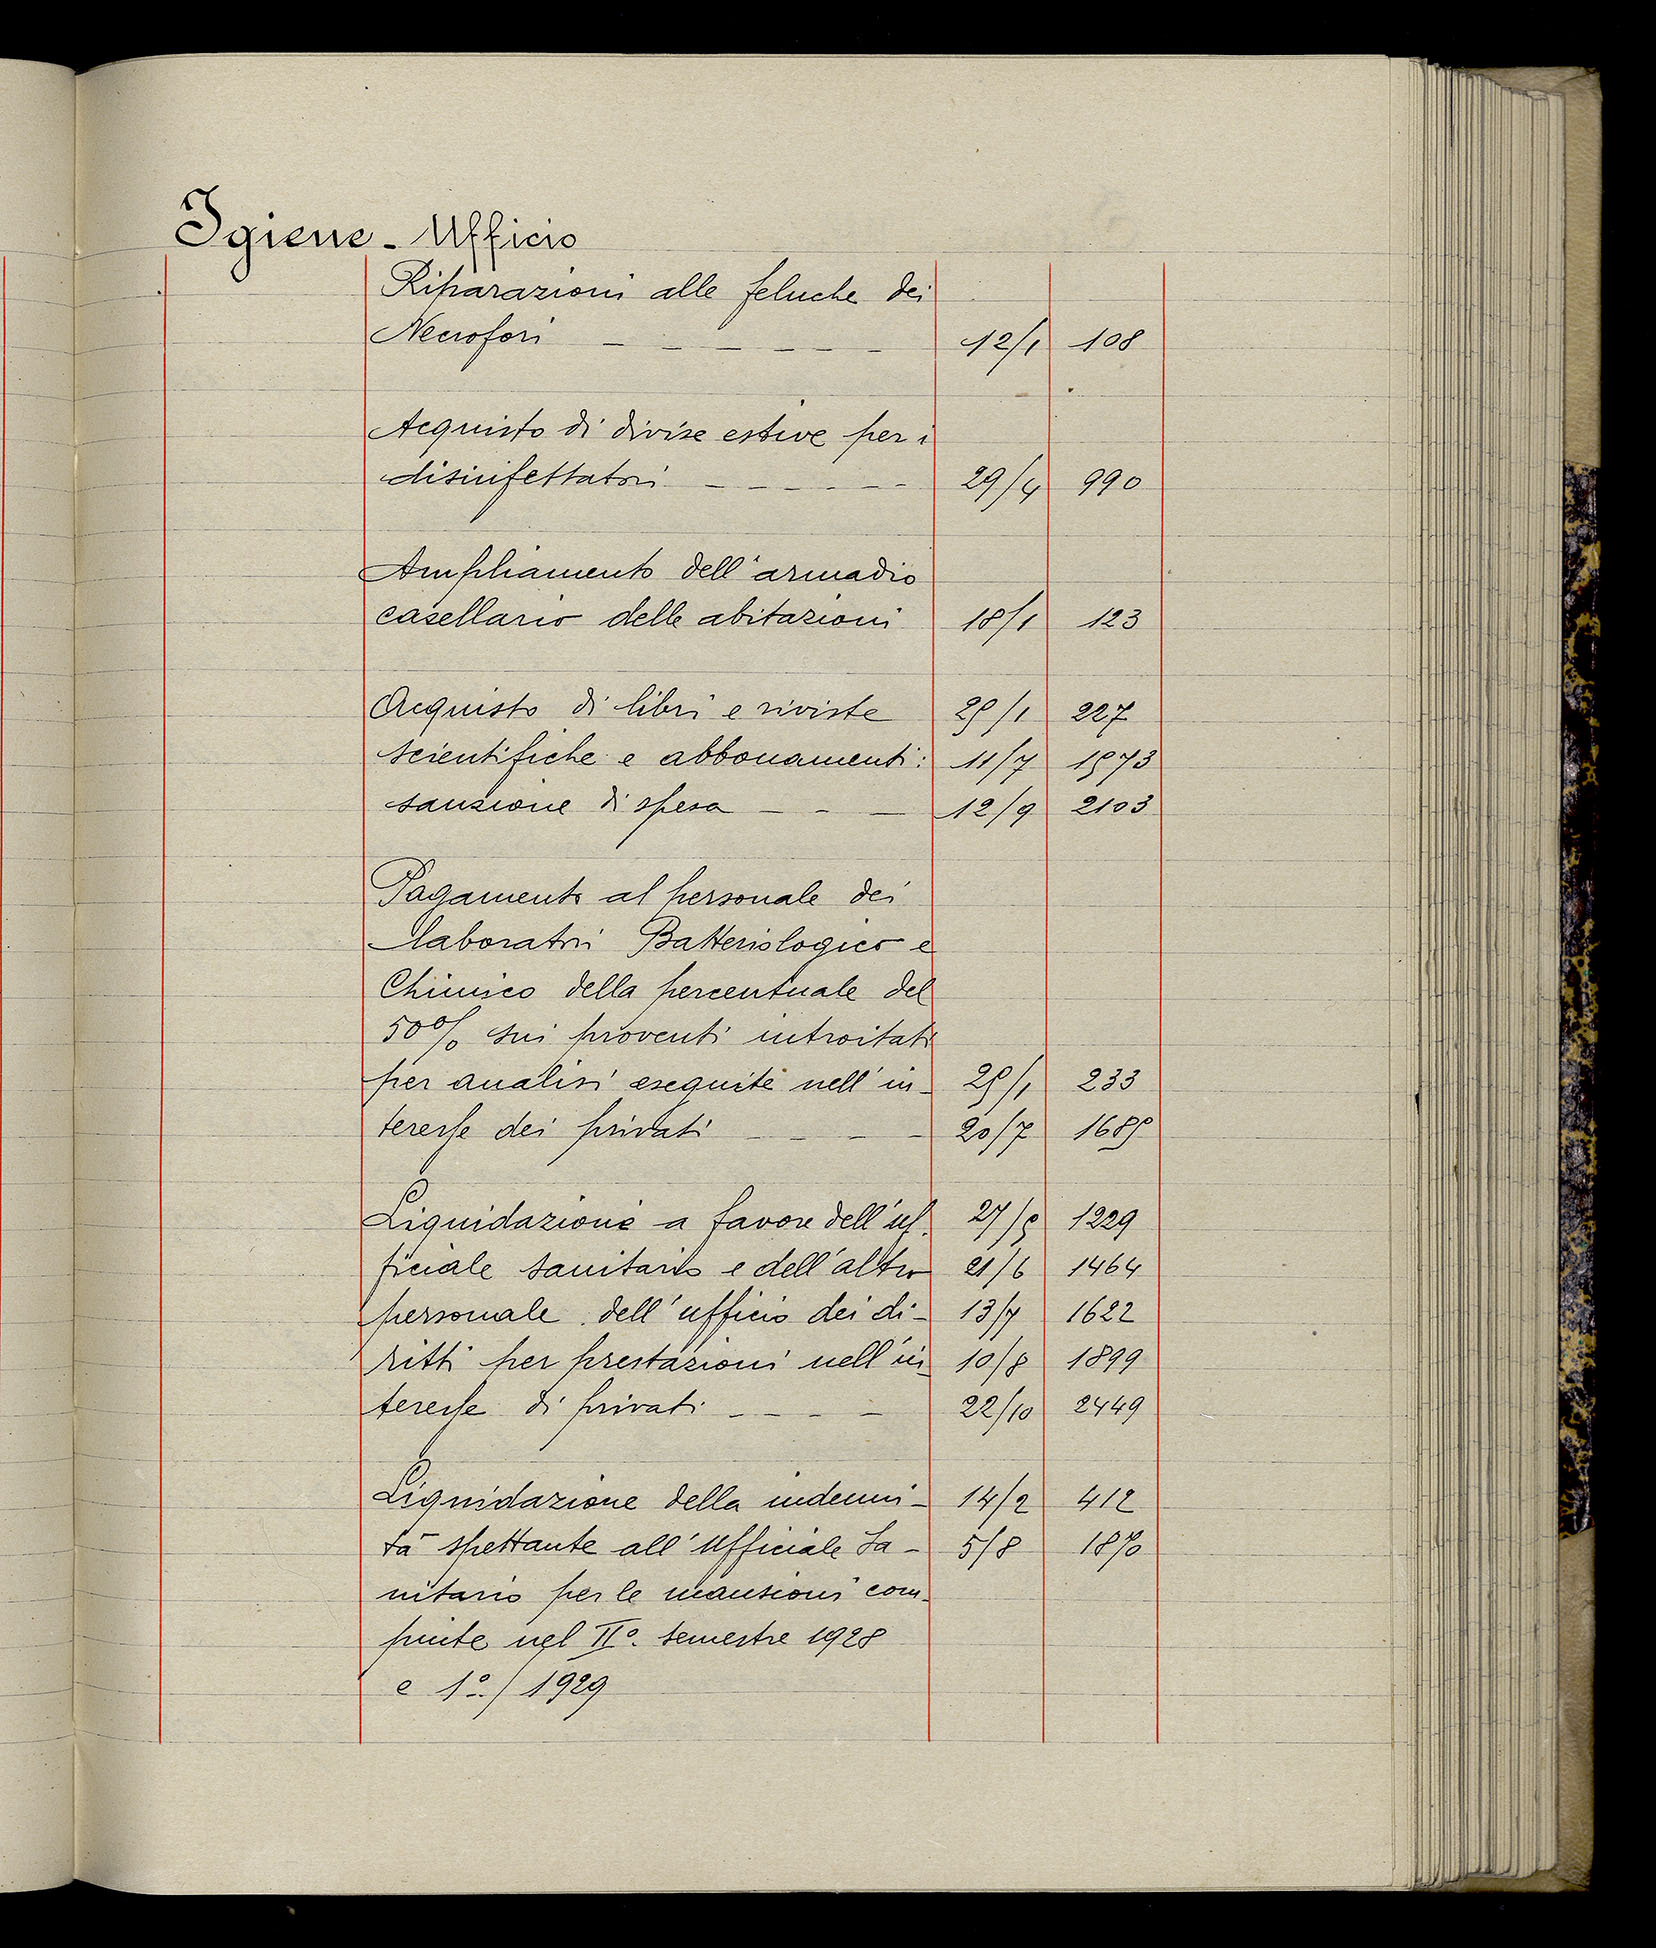 Igiene - Ufficio
Riparazioni alle feluche dei
Necrofori – – – – – 12/1 108
Acquisto di divise estive per i
disinfettatori – – – – – 29/4 990
Ampliamento dell'armadio
casellario delle abitazioni 18/1 123
Acquisto di libri e riviste 25/1 227
scientifiche e abbonamenti: 11/7 1573
sanzione di spesa – – – 12/9 2103
Pagamento al personale dei
laboratori Batteriologico e
Chimico della percentuale del
50% sui proventi introitati
per analisi eseguite nell'in- 25/1 233
teresse dei privati – – – – 20/7 1685
Liquidazione a favore dell'uf- 27/5 1229
ficiale sanitario e dell'altro 21/6 1464
personale dell'ufficio dei di- 13/7 1622
ritti per prestazioni nell'in- 10/8 1899
teresse di privati – – – – 22/10 2449
Liquidazione della indenni- 14/2 412
tà spettante all'Ufficiale Sa- 5/8 1870
nitario per le mansioni com-
piute nel IIº. semestre 1928
e 1º./ 1929